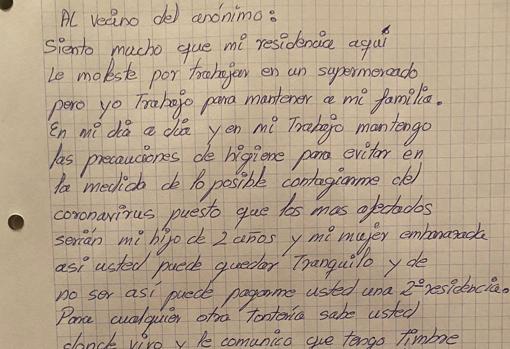 Al vecino del anónimo:
Siento mucho que mi residencia aquí
Le moleste por trabajar en un supermercado
pero yo Trabajo para mantener a mi familia.
En mi día a día y en mi Trabajo mantengo
las precauciones de higiene para evitar en
la medida de lo posible contagiarme del
coronavirus puesto que los mas afectados
serían mi hijo de 2 años y mi mujer embarazada
así usted puede quedar Tranquilo y de
no ser así puede pagarme usted una 2º residencia.
Para cualquier otra Tontería sabe usted
donde vivo y le comunico que tengo Timbre